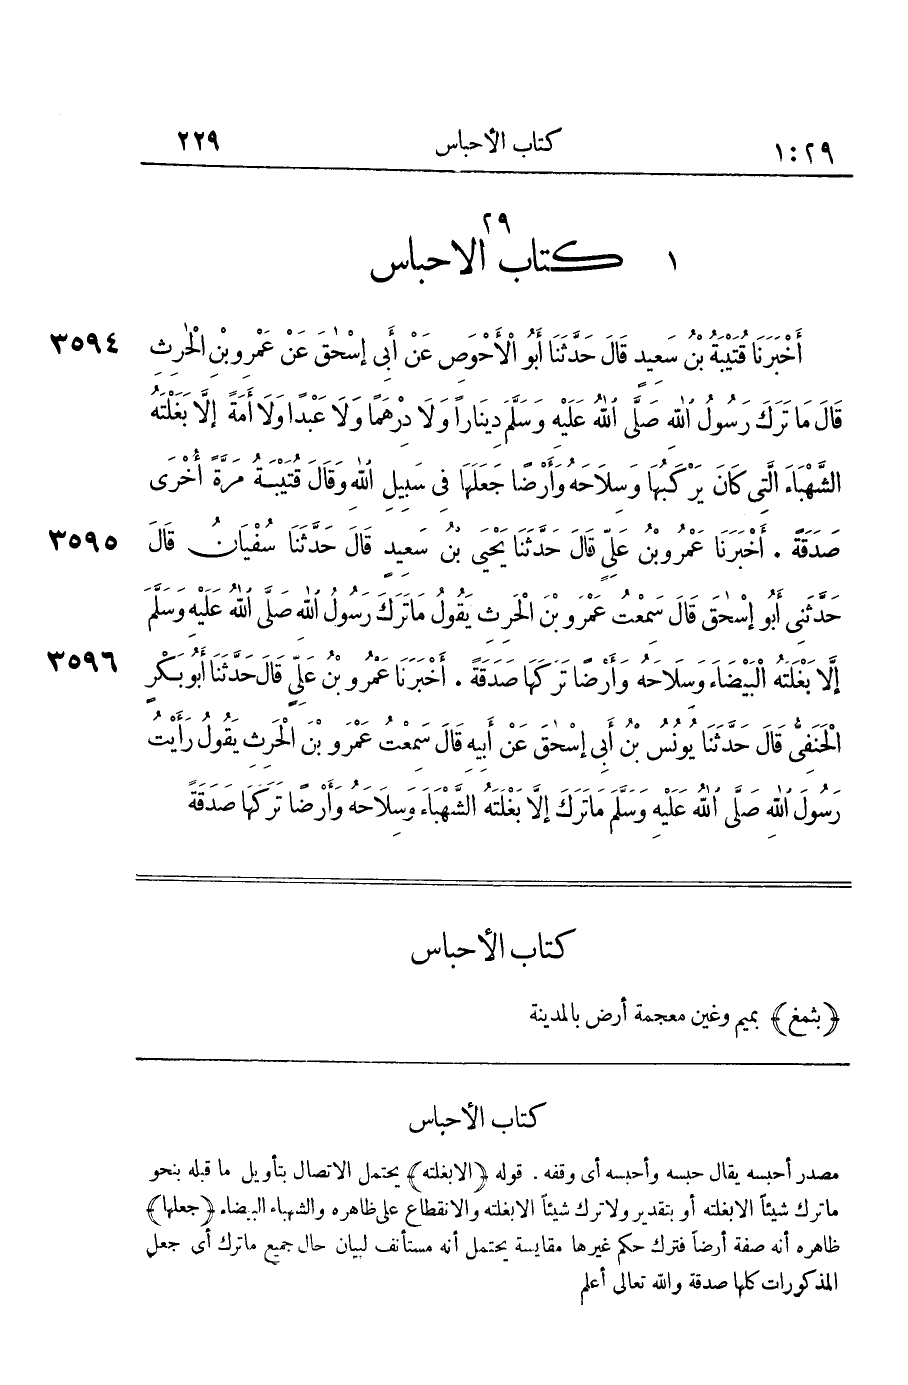 ١:٢٩ كتاب الأحباس ٢٢٩
٢٩
١ كتاب الاحباس
أَخْبَرَنَا قُتَيْبَةُ بْنُ سَعِيدٍ قَالَ حَدَّثَنَا أَبُو الْأَحْوَصِ عَنْ أَبِي إِسْحٰقَ عَنْ عَمْرِو بْنِ الْحٰرِثِ ٣٥٩٤
قَالَ مَا تَرَكَ رَسُولُ اللّٰهِ صَلَّى اللّٰهُ عَلَيْهِ وَسَلَّمَ دِينَاراً وَلَا دِرْهَمًا وَلَا عَبْدًا وَلَا أَمَةً إِلَّا بَغْلَتَهُ
الشَّهْبَاءَ الَّتِي كَانَ يَرْكَبُهَا وَسِلَاحَهُ وَأَرْضًا جَعَلَهَا فِي سَبِيلِ اللّٰهِ وَقَالَ قُتَيْبَةُ مَرَّةً أُخْرَى
صَدَقَةً . أَخْبَرَنَا عَمْرُو بْنُ عَلِيٍّ قَالَ حَدَّثَنَا يَحْيَى بْنُ سَعِيدٍ قَالَ حَدَّثَنَا سُفْيَانُ قَالَ ٣٥٩٥
حَدَّثَنِي أَبُو إِسْحٰقَ قَالَ سَمِعْتُ عَمْرَو بْنَ الْحَرِثِ يَقُولُ مَا تَرَكَ رَسُولُ اللّٰهِ صَلَّى اللّٰهُ عَلَيْهِ وَسَلَّمَ
إِلَّا بَغْلَتَهُ الْبَيْضَاءَ وَسِلَاحَهُ وَأَرْضًا تَرَكَهَا صَدَقَةً . أَخْبَرَنَا عَمْرُو بْنُ عَلِيٍّ قَالَ حَدَّثَنَا أَبُو بَكْرٍ ٣٥٩٦
الْحَنَفِيُّ قَالَ حَدَّثَنَا يُونُسُ بْنُ أَبِي إِسْحٰقَ عَنْ أَبِيهِ قَالَ سَمِعْتُ عَمْرَو بْنَ الْحَرِثِ يَقُولُ رَأَيْتُ
رَسُولَ اللّٰهِ صَلَّى اللّٰهُ عَلَيْهِ وَسَلَّمَ مَا تَرَكَ إِلَّا بَغْلَتَهُ الشَّهْبَاءَ وَسِلَاحَهُ وَأَرْضًا تَرَكَهَا صَدَقَةً
كتاب الأحباس
﴿بثمغ﴾ بميم وغين معجمة أرض بالمدينة
كتاب الأحباس
مصدر أحبسه يقال حبسه وأحبسه أى وقفه . قوله ﴿الابغلته﴾ يحتمل الاتصال بتأويل ما قبله بنحو
ماترك شيئاً الابغلته أو بتقدير ولا ترك شيئاً الابغلته والانقطاع على ظاهره والشهباء البيضاء ﴿جعلها﴾
ظاهره أنه صفة أرضاً فترك حكم غيرها مقايسة يحتمل أنه مستأنف لبيان حال جميع ماترك أى جعل
المذكورات كلها صدقة والله تعالى أعلم